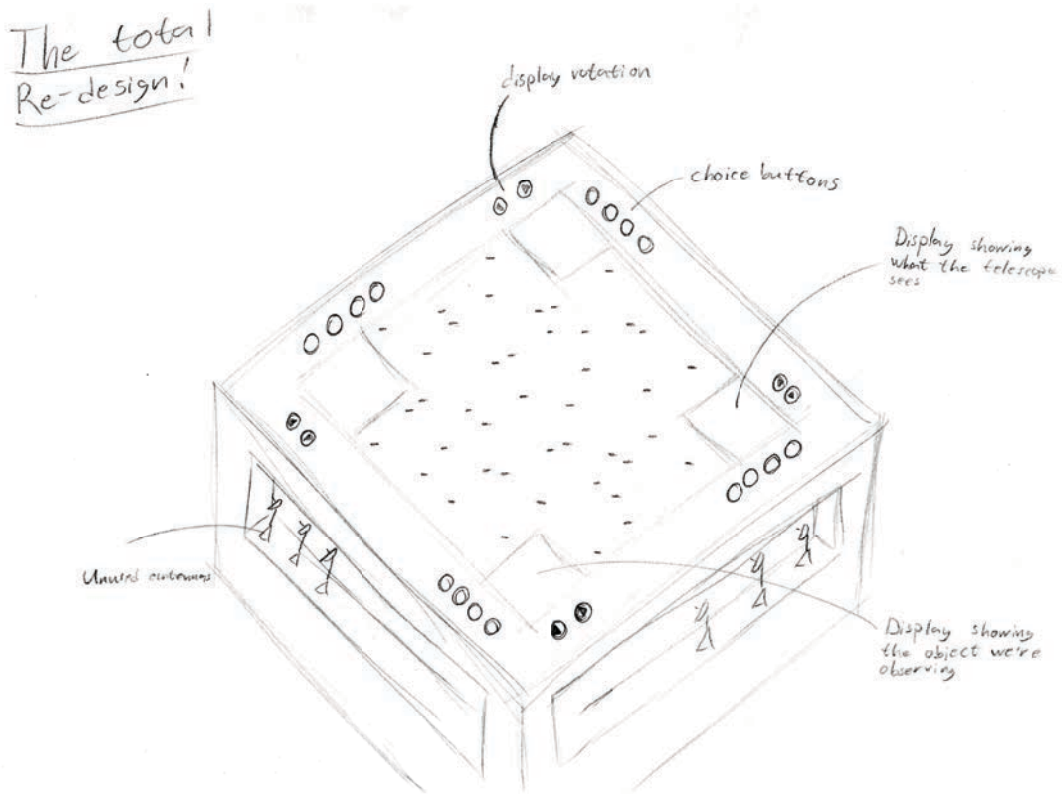 The total
Re-design!
display rotation
choice buttons
Display showing
what the telescope
sees
Unused antennas
Display showing
the object we're
observing